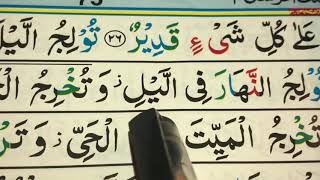 عَلٰی كُلِّ شَیْءٍ قَدِیْرٌ ۝۲۶ تُوْلِجُ الَّیْلَ
النَّهَارَ فِی الَّیْلِ ؗ وَ تُخْرِجُ
تُخْرِجُ الْمَیِّتَ الْحَیِّ ؗ وَ